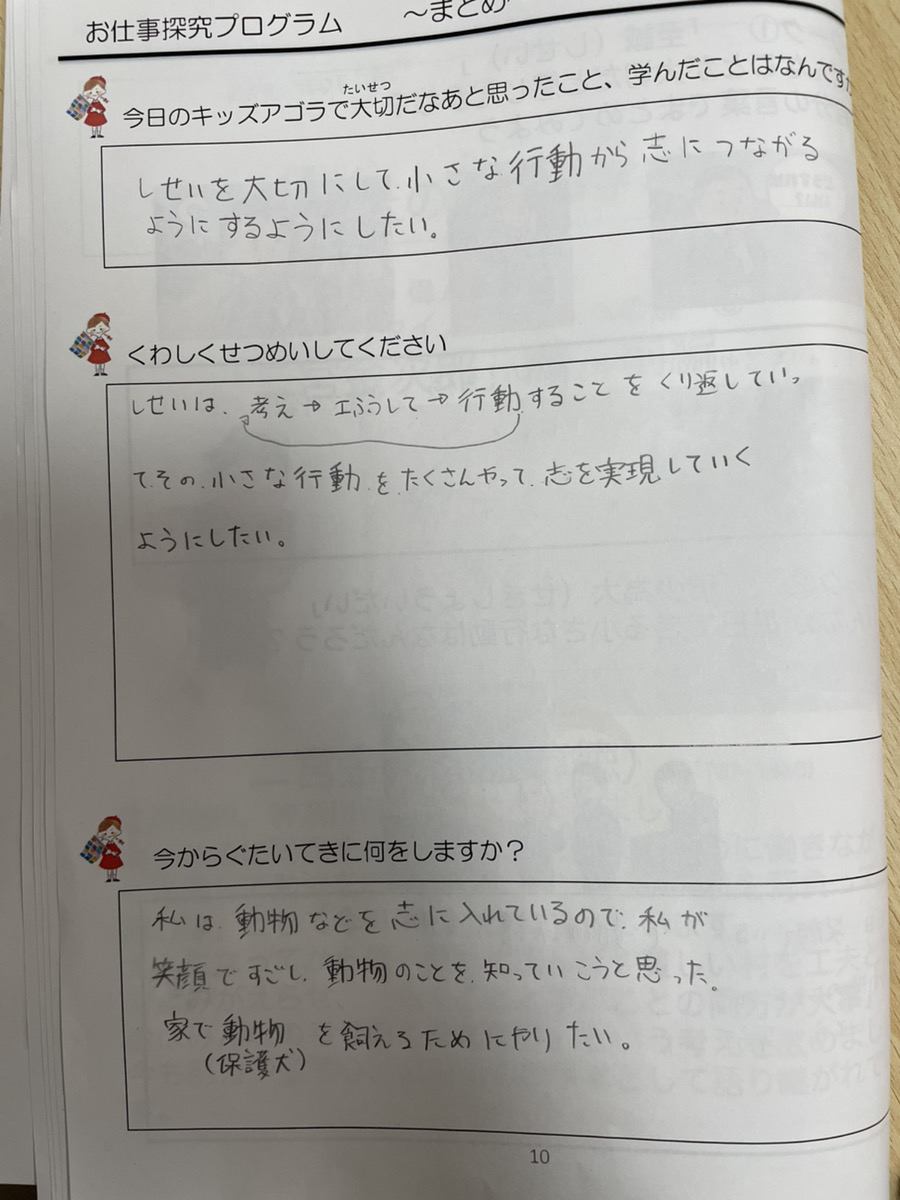 お仕事探究プログラム　～まとめ
たいせつ
今日のキッズアゴラで大切だなあと思ったこと、学んだことはなんです
しせいを大切にして、小さな行動から志につながる
ようにするようにしたい。
くわしくせつめいしてください
しせいは、考え→工ふうして→行動することをくり返していっ
て、その、小さな行動を、たくさんやって、志を実現していく
ようにしたい。
今からぐたいてきに何をしますか？
私は、動物などを志に入れているので、私が
笑顔ですごし、動物のことを、知っていこうと思った。
家で動物を飼えるためにやりたい。
（保護犬）
10